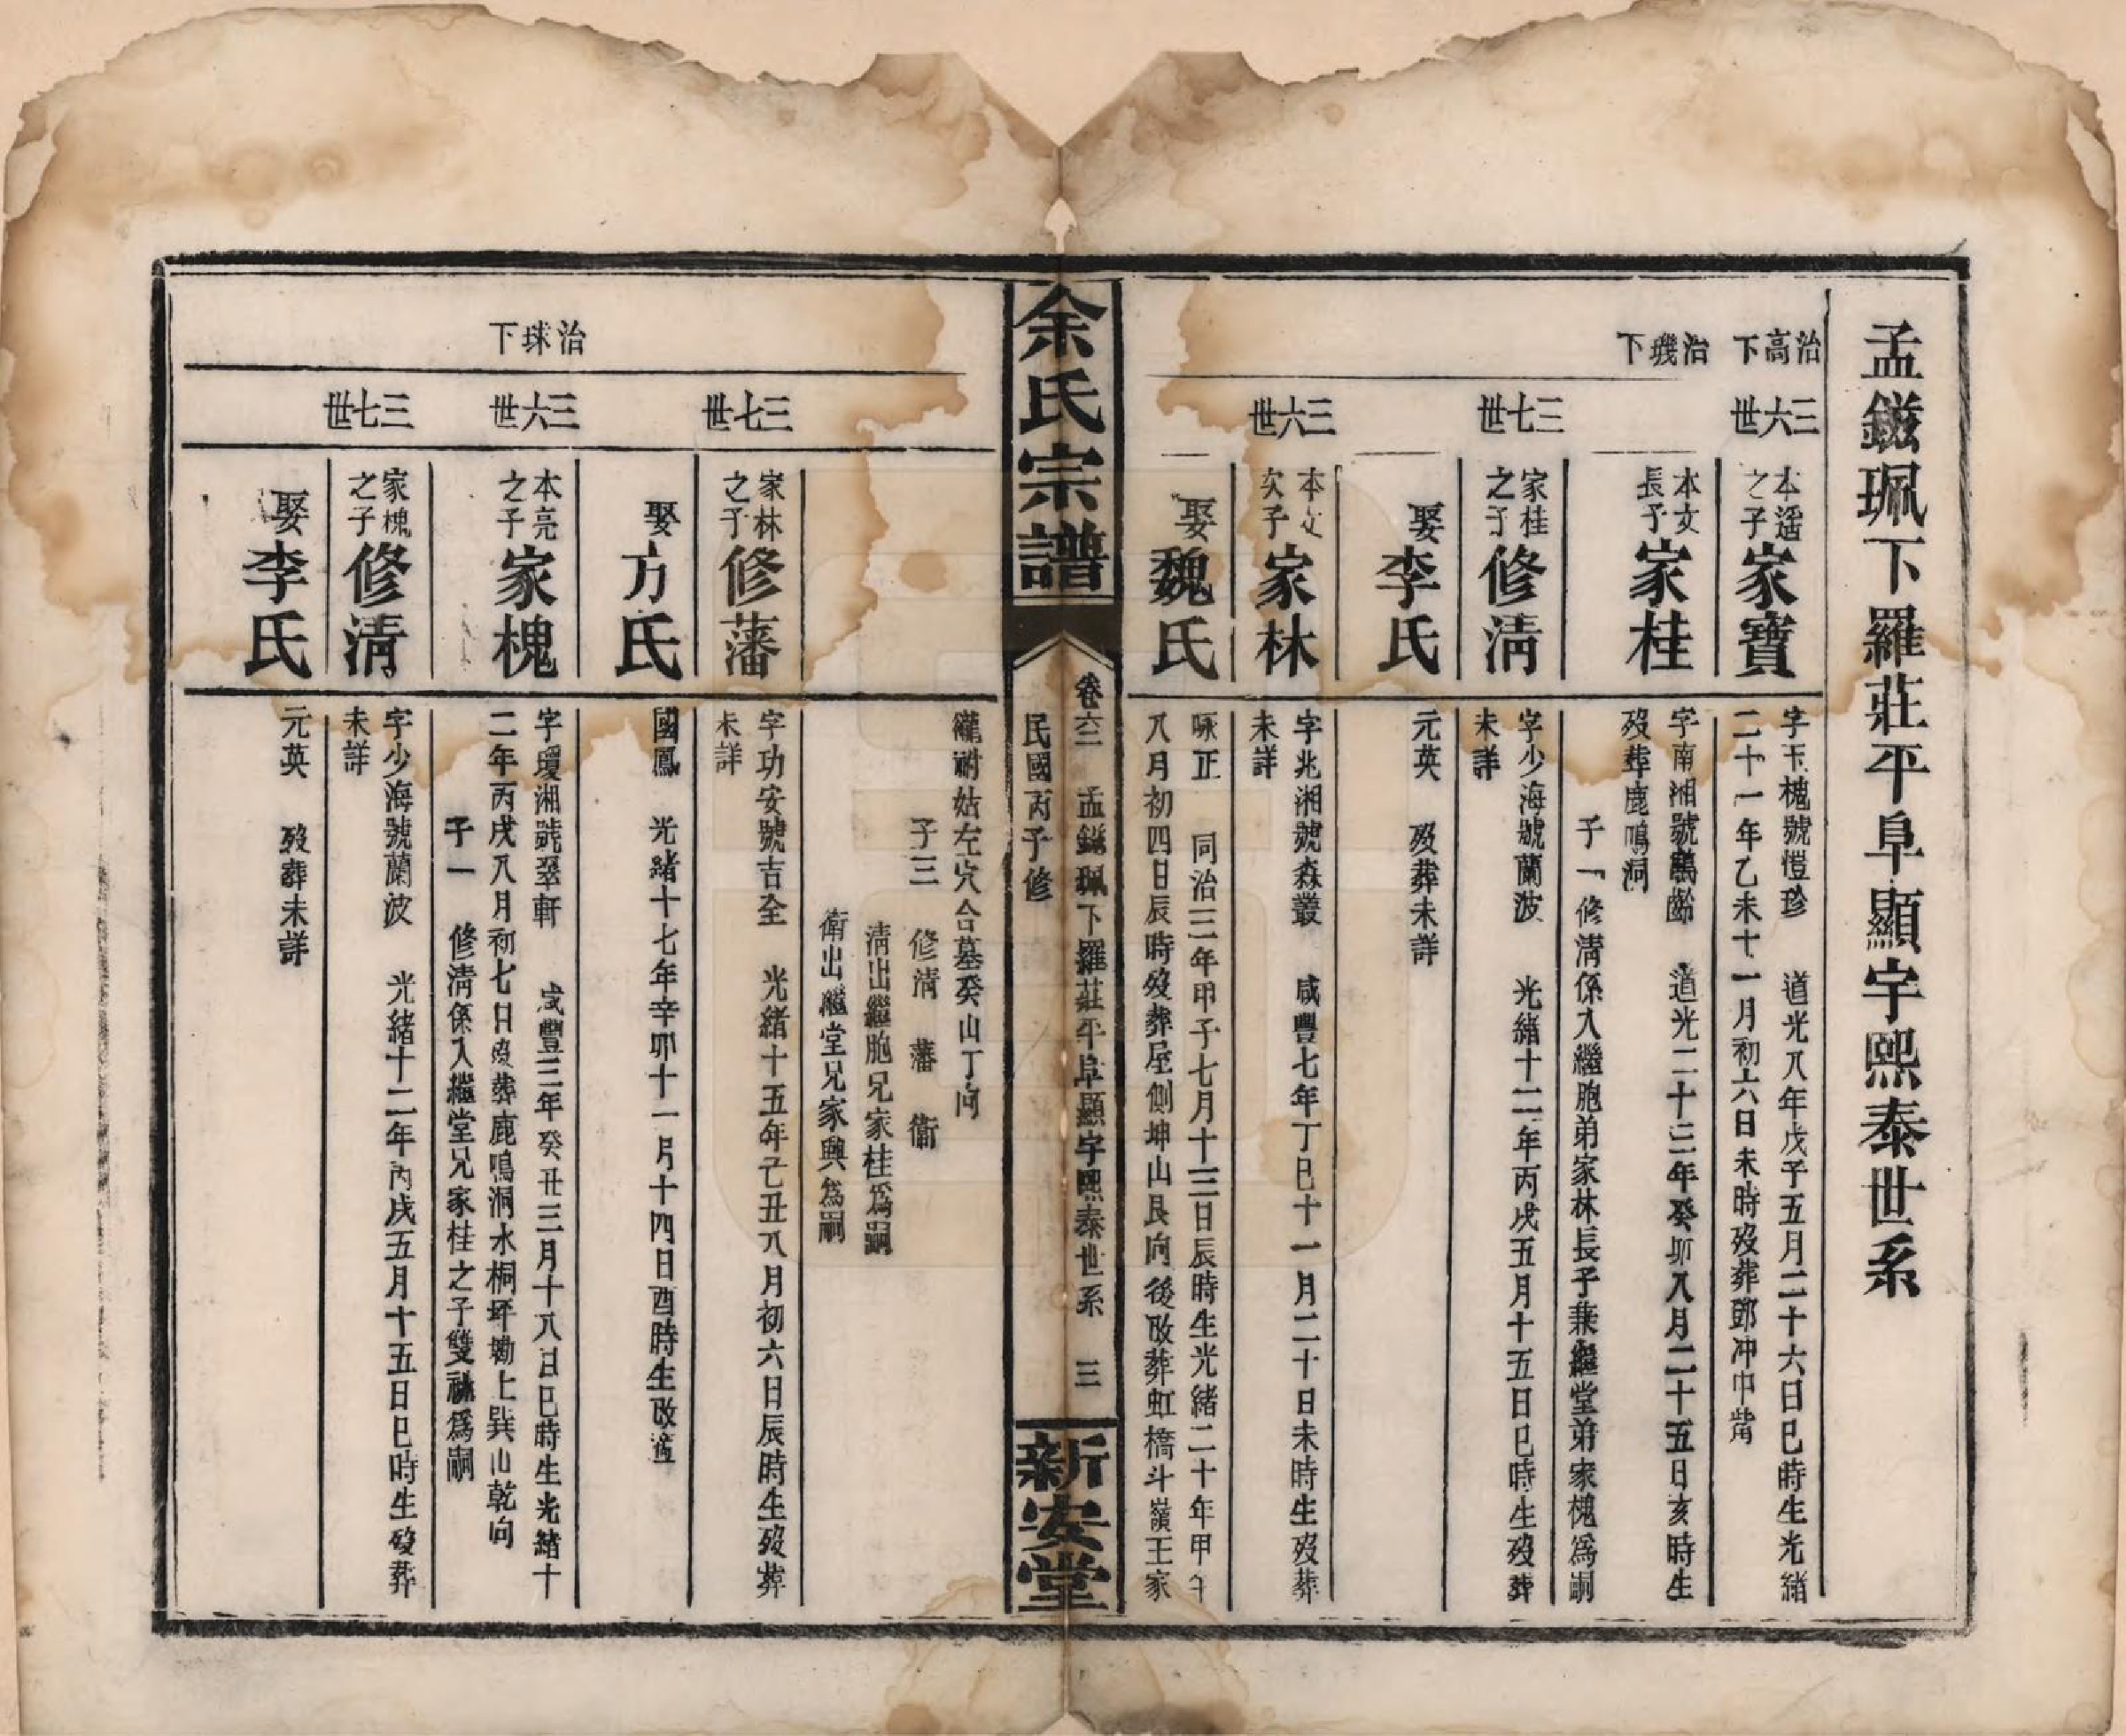 孟鎡珮下羅莊平阜顯宇熙泰世系
治高下
三六世
本遥之子家寶
字玉槐號愷珍　道光八年戊子五月二十六日巳時生光緒
二十一年乙未十一月初六日未時歿葬鄧冲中嘴
治璣下
本文長子家桂
字南湘號鶴齡　道光二十三年癸卯八月二十五日亥時生
歿葬鹿鳴洞
子一　修清係入繼胞弟家林長子兼繼堂弟家槐為嗣
三七世
家桂之子修清
字少海號蘭波　光緒十二年丙戌五月十五日巳時生歿葬
未詳
娶李氏
元英　歿葬未詳
三六世
本文次子家林
字兆湘號森叢　咸豐七年丁巳十一月二十日未時生歿葬
未詳
娶魏氏
咏正　同治三年甲子七月十三日辰時生光緒二十年甲午
八月初四日辰時歿葬屋側坤山艮向後改葬虹橋斗嶺王家
余氏宗譜
卷六二　孟鎡珮下羅莊平阜顯宇熙泰世系　三
民國丙子修
新安堂
瓏祔姑左穴合墓癸山丁向
子三　修清　藩　衛
清出繼胞兄家桂為嗣
衛出繼堂兄家興為嗣
三七世
家林之子修藩
字功安號吉全　光緒十五年己丑八月初六日辰時生歿葬
未詳
娶方氏
國鳳　光緒十七年辛卯十一月十四日酉時生改適
治球下
三六世
本亮之子家槐
字瓊湘號翠軒　咸豐三年癸丑三月十八日巳時生光緒十
二年丙戌八月初七日歿葬鹿鳴洞水桐坪坳上巽山乾向
子一　修清係入繼堂兄家桂之子雙祧為嗣
三七世
家槐之子修清
字少海號蘭波　光緒十二年丙戌五月十五日巳時生歿葬
未詳
娶李氏
元英　歿葬未詳